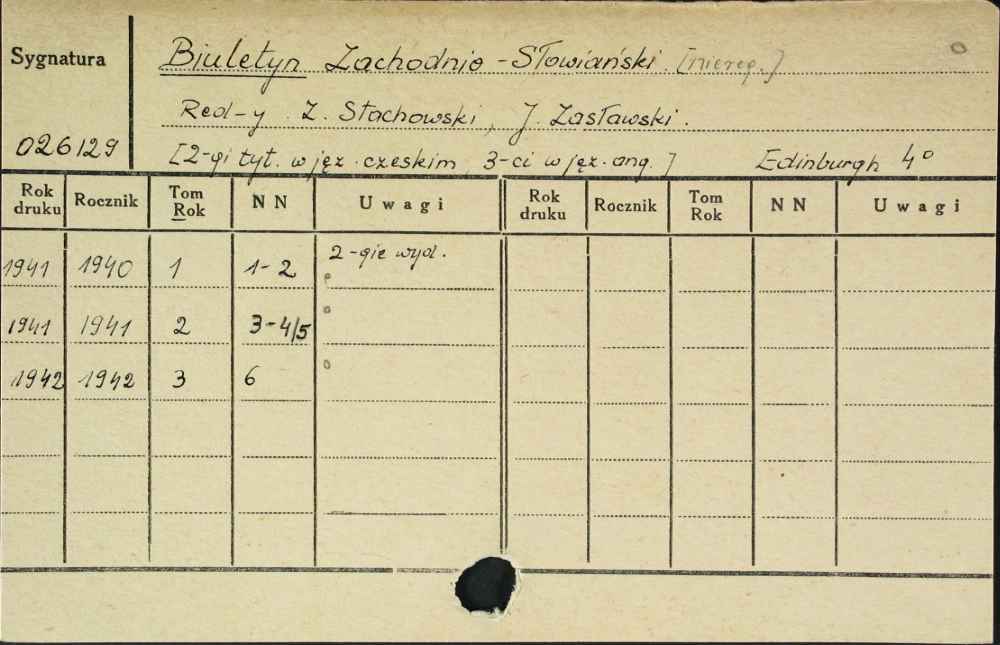 Sygnatura
Biuletyn Zachodnio-Słowiański. [niereg.]
Red-y Z. Stachowski, J. Zasławski.
026129
[2-gi tyt. w jęz. czeskim, 3-ci w jęz. ang.] Edinburgh 4°
Rok druku Rocznik Tom Rok NN Uwagi Rok druku Rocznik Tom Rok NN Uwagi
1941 1940 1 1-2 2-gie wyd.
1941 1941 2 3-4/5
1942 1942 3 6